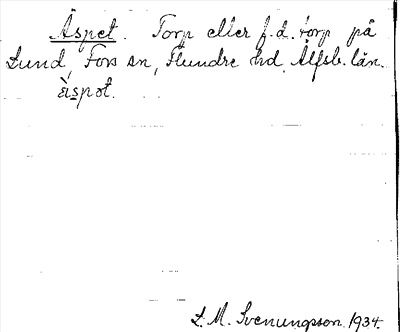 Äspet. Torp eller f.d. torp på
Lund, Fors sn, Flundre hd. Älfsb. län.
ä̀spɷt.
L. M. Svenungsson 1934.